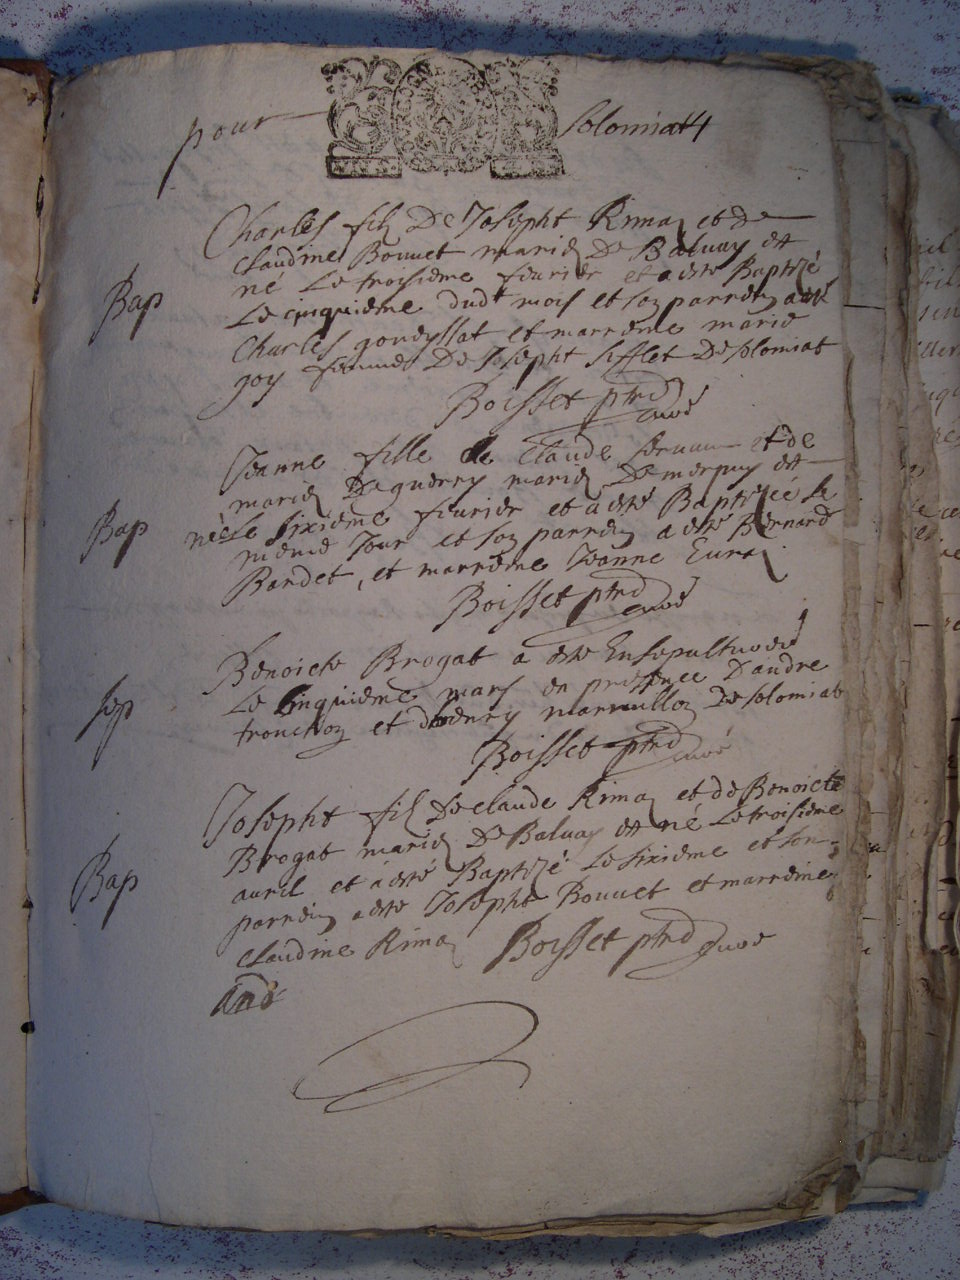 pour solomiatt
Charles filz De Josepht Rimaz et de
Claudine Bouuet mariez De Baluay ett
né Le troisieme feurier et a esté Baptizé
Bap Le cinquieme dudt mois et son parrein a esté
Charles goueyssat et marreme marie
goy femme De Josepht sifflet De solomiat
Boisset ptrd
Jeanne fille de Claude et de
mariez mariez De merpuy ett
Bap née Le sixieme feurier et a esté Baptizée Le
meme Jour et son parrein a esté Bernard
Bardet, et marreme Jeanne
Boisset ptrd
Benoicte Brogat a esté Ensepulturée
sep Le Cinquieme mars en presence D'andre
tronchon et marmillon De solomiat
Boisset ptrd
Josepht filz De claude Rimaz et de Benoicte
Brogat mariez De Baluay ett né Le troisieme
auril et a esté Baptizé Le sixieme et son
Bap parrein a esté Josepht Bouuet et marreme
Claudine Rimaz Boisset ptrd